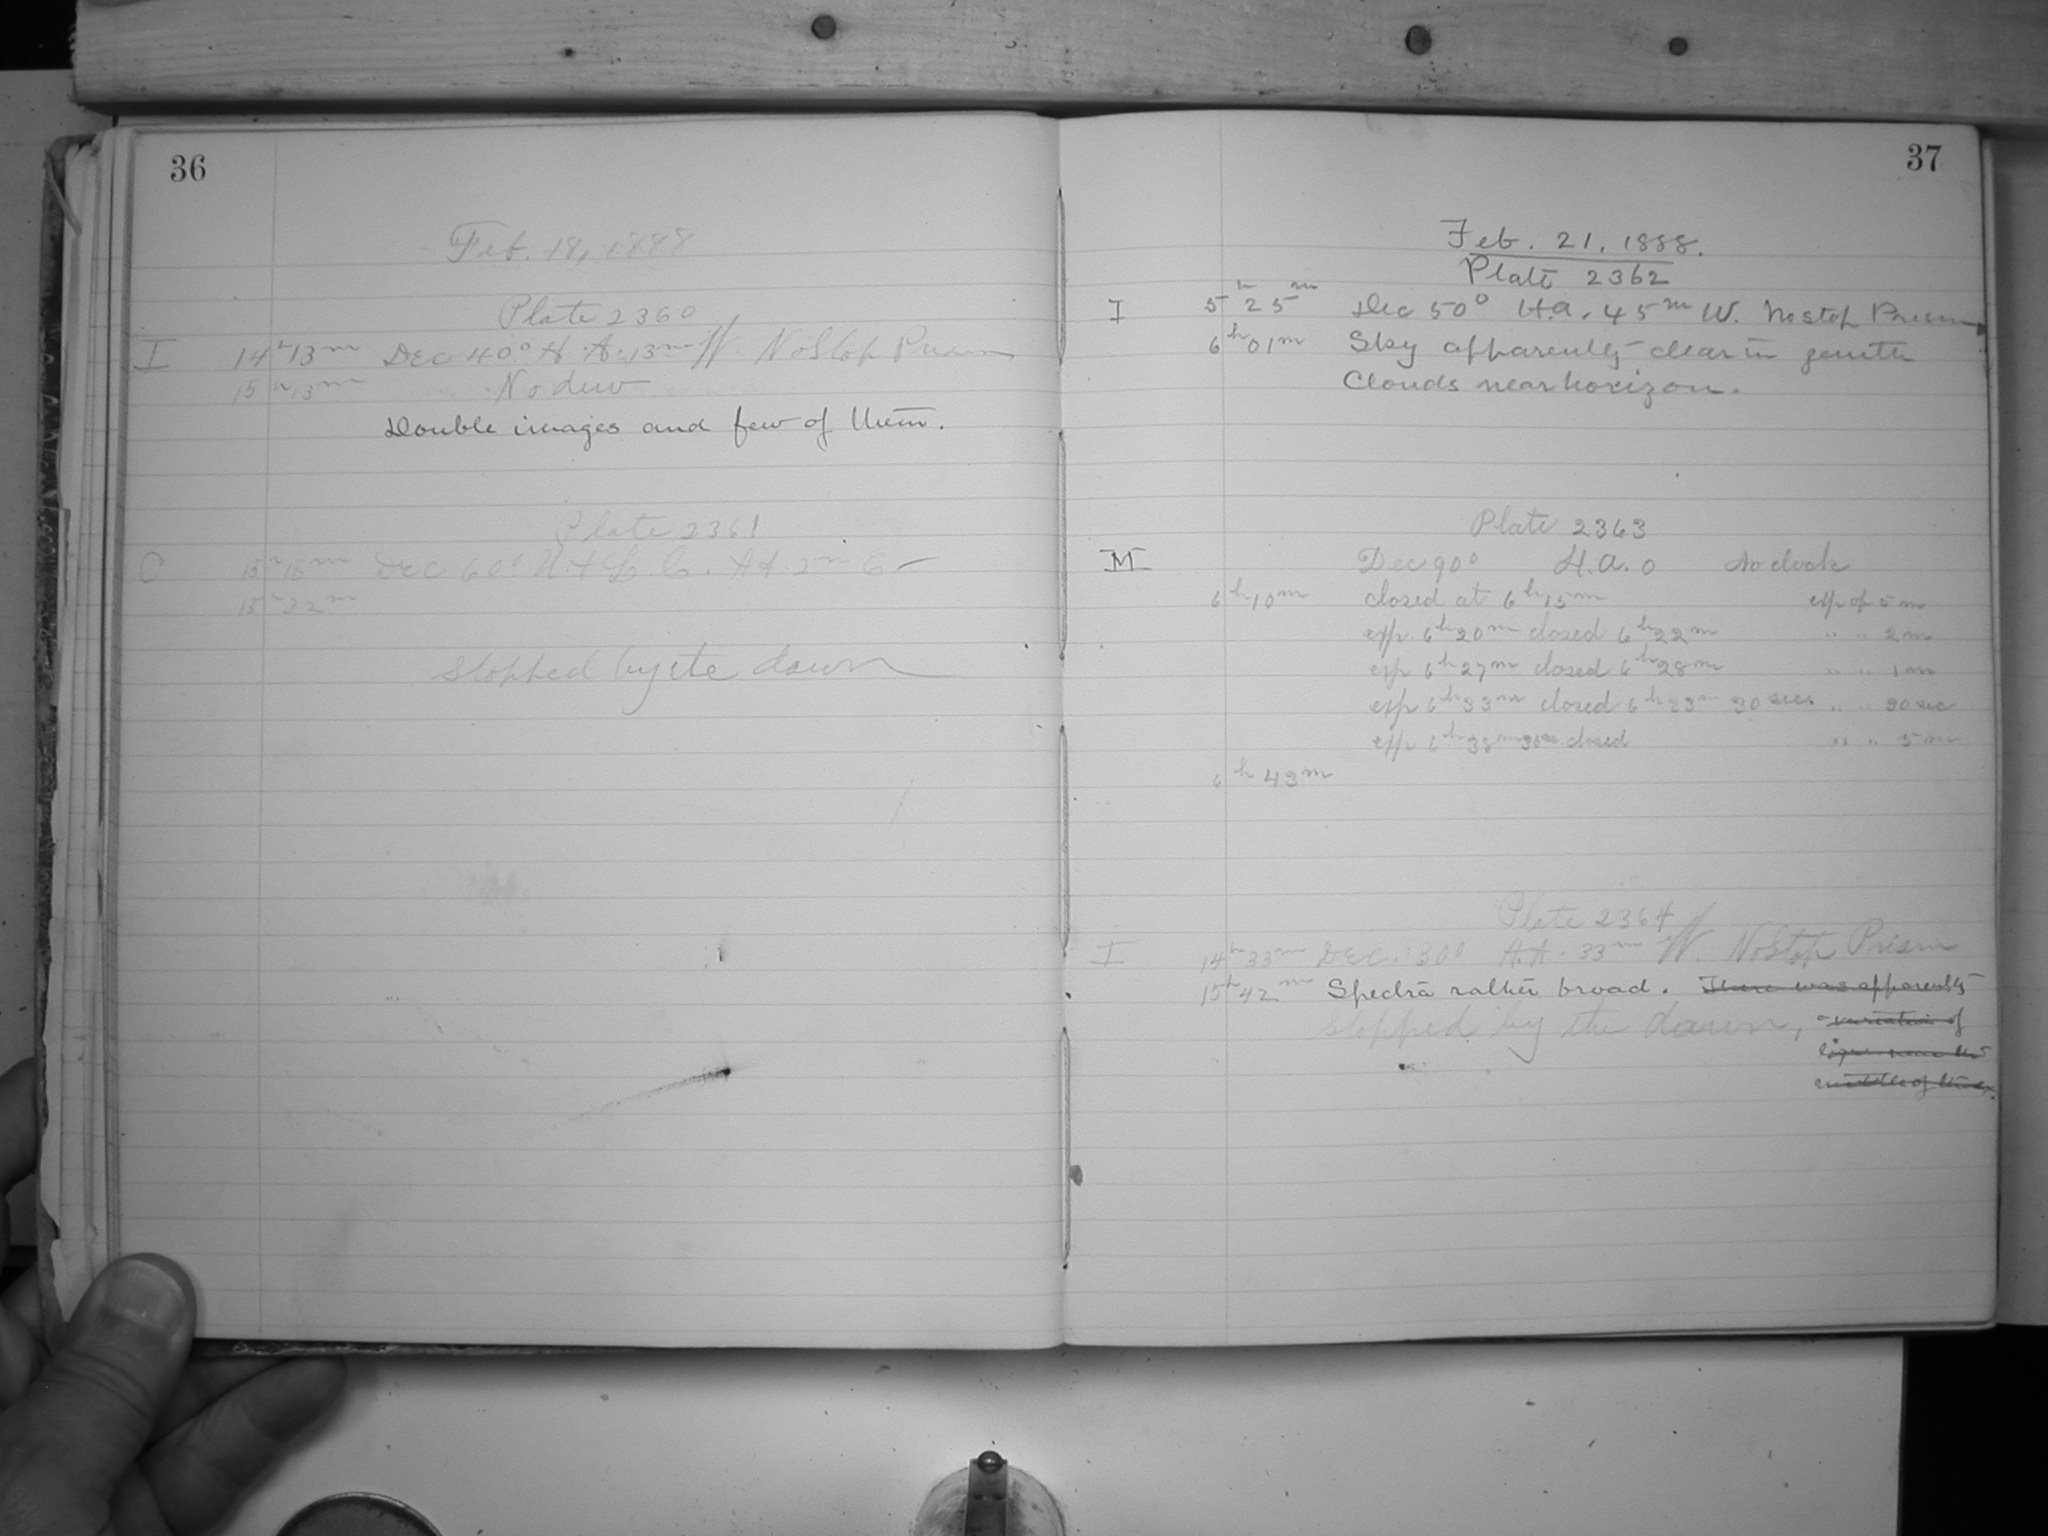 36
Feb. 18, 1888
Plate 2360
I 14h13m Dec 40° H.A. 13m W. No Stop Prism
15h13m No dew
Double images and few of them.
Plate 2361
C 15h18m Dec 60° H.A. 2m E
15h22m
Stopped by the dawn
37
Feb. 21, 1888.
Plate 2362
I 5h25m Dec 50° H.a. 45m W. No stop Prism
6h01m Sky apparently clear in zenith
Clouds near horizon.
Plate 2363
M Dec 90° H.a. 0 No clock
6h10m closed at 6h15m exp of 5m
exp. 6h20m closed 6h22m " " 2m
exp 6h27m closed 6h28m " " 1m
exp 6h33m closed 6h33m 30 sec. " " 30 sec
exp 6h38m30s closed " " 5m
6h43m
Plate 2364
I 14h33m Dec. 30° H.A. 33m W. No Stop Prism
15h42m Spectra rather broad. There was apparently
Stopped by the dawn, a variation of
near the
middle of the